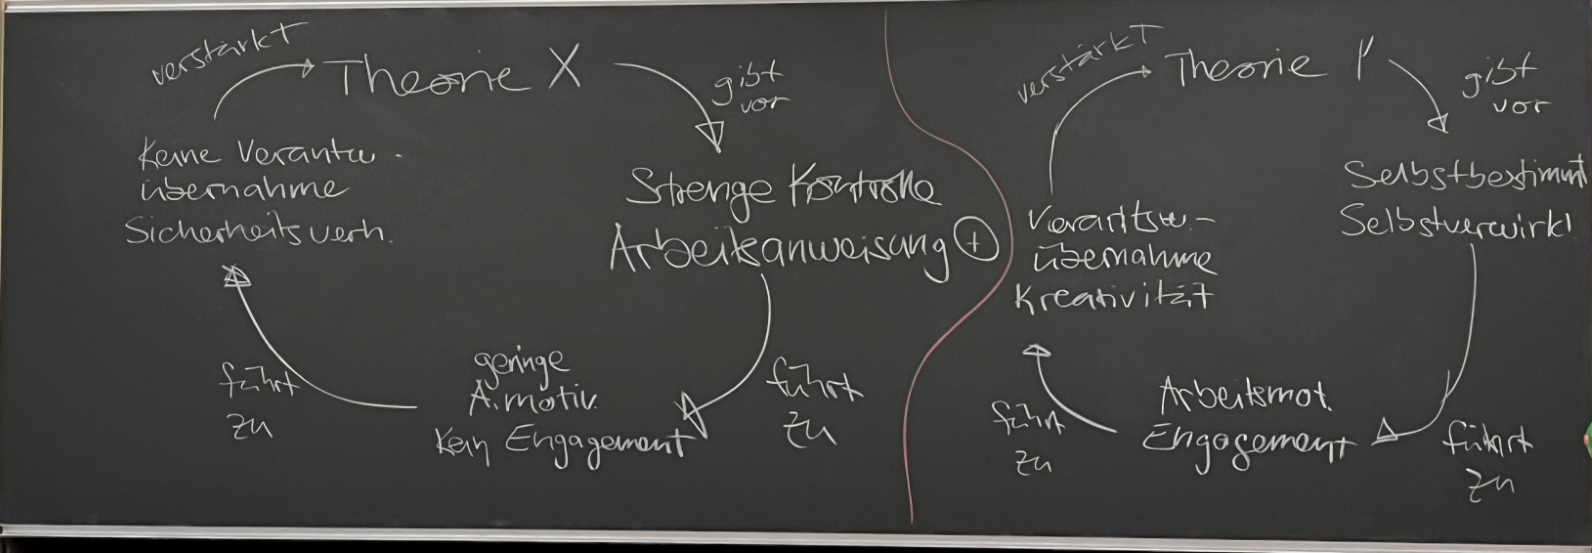 verstärkt
Theorie X
gibt
vor
Strenge Kontrolle
Arbeitsanweisung +
führt
zu
geringe
A.motiv.
Kein Engagement
führt
zu
Keine Verantw.
übernahme
Sicherheitsverh.
verstärkt
Theorie Y
gibt
vor
Selbstbestimmt
Selbstverwirkl
führt
zu
Arbeitsmot.
Engagement
führt
zu
Verantw.-
übernahme
Kreativität